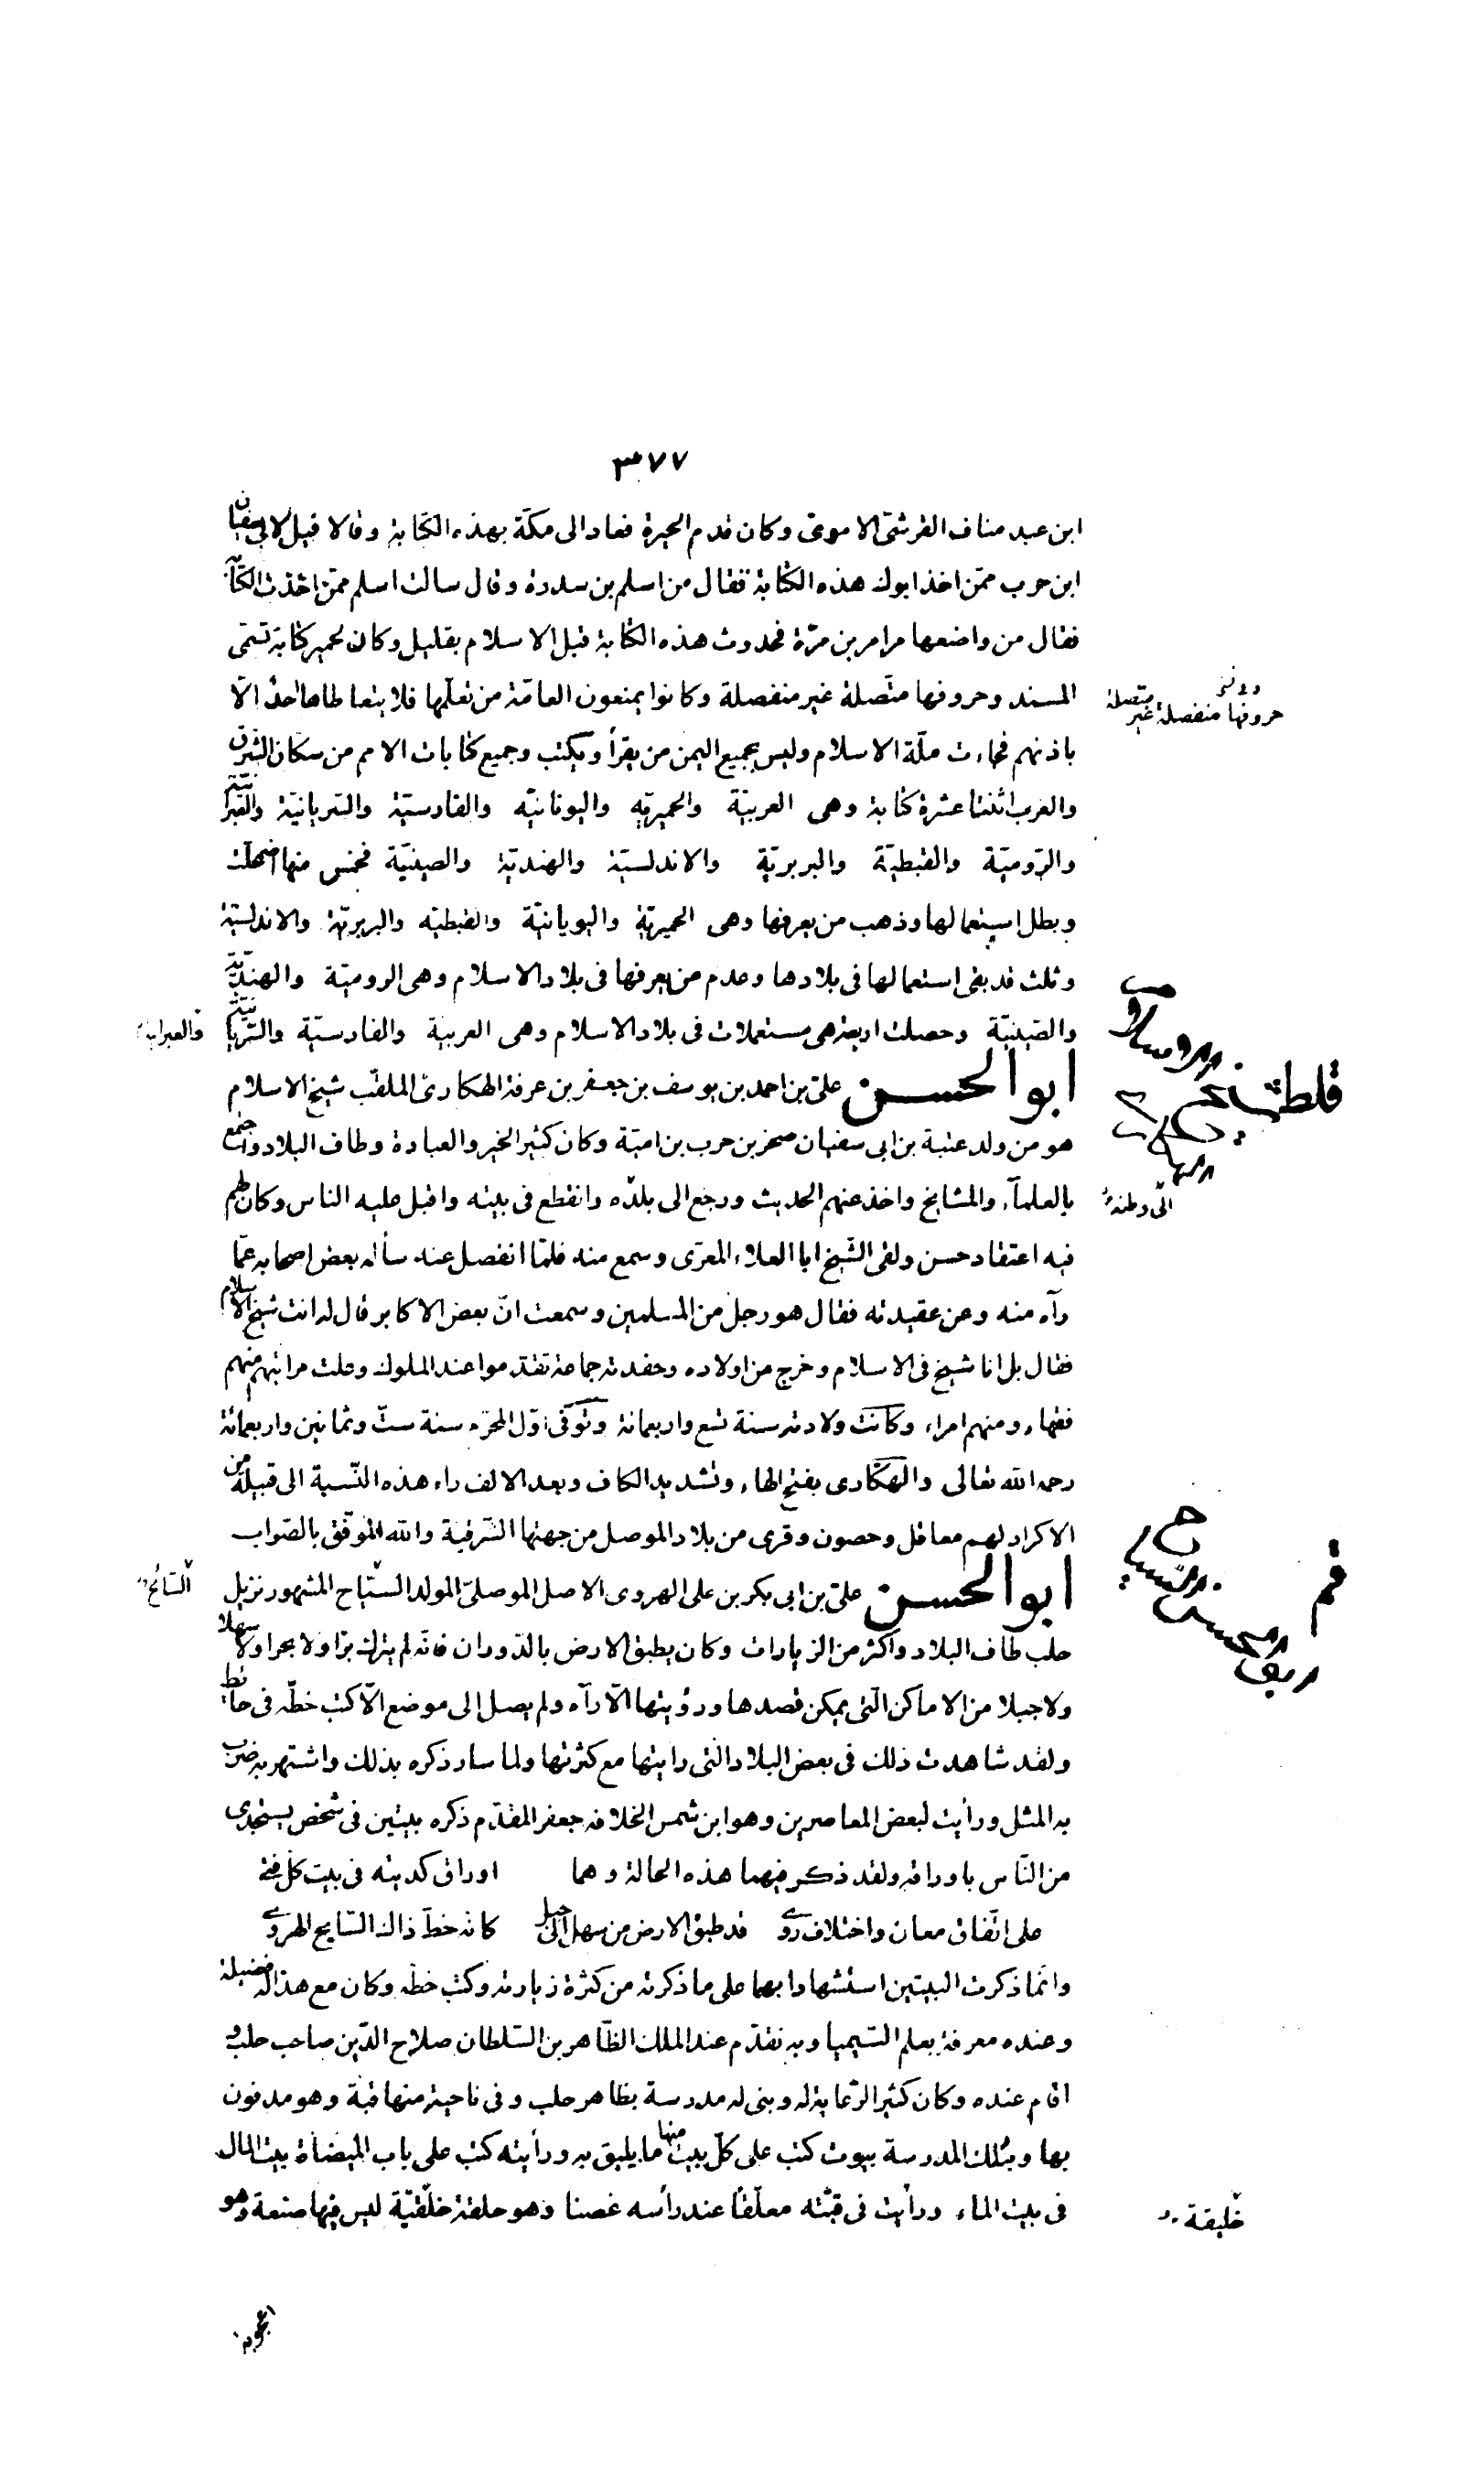 ٣٧٧
ابن عبد مناف القرشىّ الاموىّ وكان قدم الحيرة فعاد الى مكّة بهذه الكتابة وقالا قيل لابى سفيان
ابن حرب ممّن اخذ ابوك هذه الكتابة فقال من اسلم بن سدرة وقال سالت اسلم ممّن اخذت الكتابة
فقال من واضعها مرامر بن مرّة فحدوث هذه الكتابة قبل الاسلام بقليل وكان لحمير كتابة تسمّى
المسند وحروفها متّصلة غير منفصلة وكانوا يمنعون العامّة من تعلّمها فلا يتعاطاها احدٌ الاّ
حروفها منفصلة غير متّصلة
باذنهم فجاءت ملّة الاسلام وليس بجميع اليمن من يقرأ ويكتب وجميع كتابات الامم من سكان الشرق
والغرب اثنتا عشرة كتابة وهى العربيّة والحميريّه واليونانيّه والفارسيّة والسريانيّة والعبرانيّة
والرّوميّة والقبطيّة والبربريّة والاندلسيّة والهنديّة والصينيّة فخمس منها اضمحلّت
وبطل استعمالها وذهب من يعرفها وهى الحميريّة واليونانيّة والقبطيّه والبربريّة والاندلسيّة
وثلث قد بقى استعمالها فى بلادها وعدم من يعرفها فى بلاد الاسلام وهى الروميّة والهنديّة
والصّينيّة وحصلت اربعة هى مستعملات فى بلاد الاسلام وهى العربية والفارسيّة والسّريانيّة
والعبرانية
ابو الحسن علىّ بن احمد بن يوسف بن جعفر بن عرفة الهكارىّ الملقّب شيخ الاسلام
هو من ولد عتبة بن ابى سفيان صخر بن حرب بن اميّة وكان كثير الخير والعبادة وطاف البلاد واجتمع
بالعلمآء والمشايخ واخذ عنهم الحديث ورجع الى بلدّه وانقطع فى بيته واقبل عليه الناس وكان لهم
الى وطنه
فيه اعتقاد حسن ولقى الشّيخ ابا العلاء المعرّى وسمع منه فلمّا انفصل عنه سأله بعض اصحابه عمّا
رآه منه وعن عقيدته فقال هو رجل من المسلمين وسمعت انّ بعض الاكابر قال له انت شيخ الاسلام
فقال بل انا شيخ فى الاسلام وخرج من اولاده وحفدته جماعة تقدّموا عند الملوك وعلت مراتبهم منهم
فقهاء ومنهم امراء وكانت ولادته سنة تسع واربعمائة وتوفّى اوّل المحرّم سنة ستّ وثمانين واربعمائة
رحمه الله تعالى والهكّارى بفتح الهاء وتشديد الكاف وبعد الالف راء هذه النّسبة الى قبيلة من
الاكراد لهم معاقل وحصون وقرى من بلاد الموصل من جهتها الشّرقية والله الموفّق بالصّواب
ابو الحسن علىّ بن ابى بكر بن على الهروى الاصل الموصلىّ المولد السّيّاح المشهور نزيل
السّائح
حلب طاف البلاد واكثر من الزيارات وكان يطبق الارض بالدّوران فانّه لم يترك برّا ولا بحرا ولا سهلا
ولا جبلا من الاماكن الّتى يمكن قصدها ورؤيتها الاّ رآه ولم يصل الى موضع الاّ كتب خطّه فى حائط
ولقد شاهدت ذلك فى بعض البلاد الّتى رايتها مع كثرتها ولما سار ذكره بذلك واشتهر به ضرب
به المثل ورأيت لبعض المعاصرين وهو ابن شمس الخلافه جعفر المقدّم ذكره بيتين فى شخص يستجدى
من النّاس باوراقه ولقد ذكر فيهما هذه الحالة وهما اوراق كديته فى بيت كل فتى
على اتّفاق معان واختلاف روى قد طبق الارض من سهل الى جبل كانه خطّ ذاك السّايح الهروى
وانّما ذكرت البيتين استشهادا بهما على ما ذكرته من كثرة زيارته وكتب خطّه وكان مع هذا له فضيلة
وعنده معرفة بعلم السّيميا وبه تقدّم عند الملك الظّاهر بن السّلطان صلاح الدّين صاحب حلب و
اقام عنده وكان كثير الرّعاية له وبنى له مدرسة بظاهر حلب وفى ناحية منها قبّة وهو مدفون
بها وبتلك المدرسة بيوت كتب على كلّ بيت منها ما يليق به ورأيته كتب على باب الميضاة بيت المال
فى بيت الماء ورأيت فى قبّته معلّقًا عند رأسه غصنا وهو حلقة خلّقيّة ليس فيها صنعة وهو
خليقة
اعجوبة